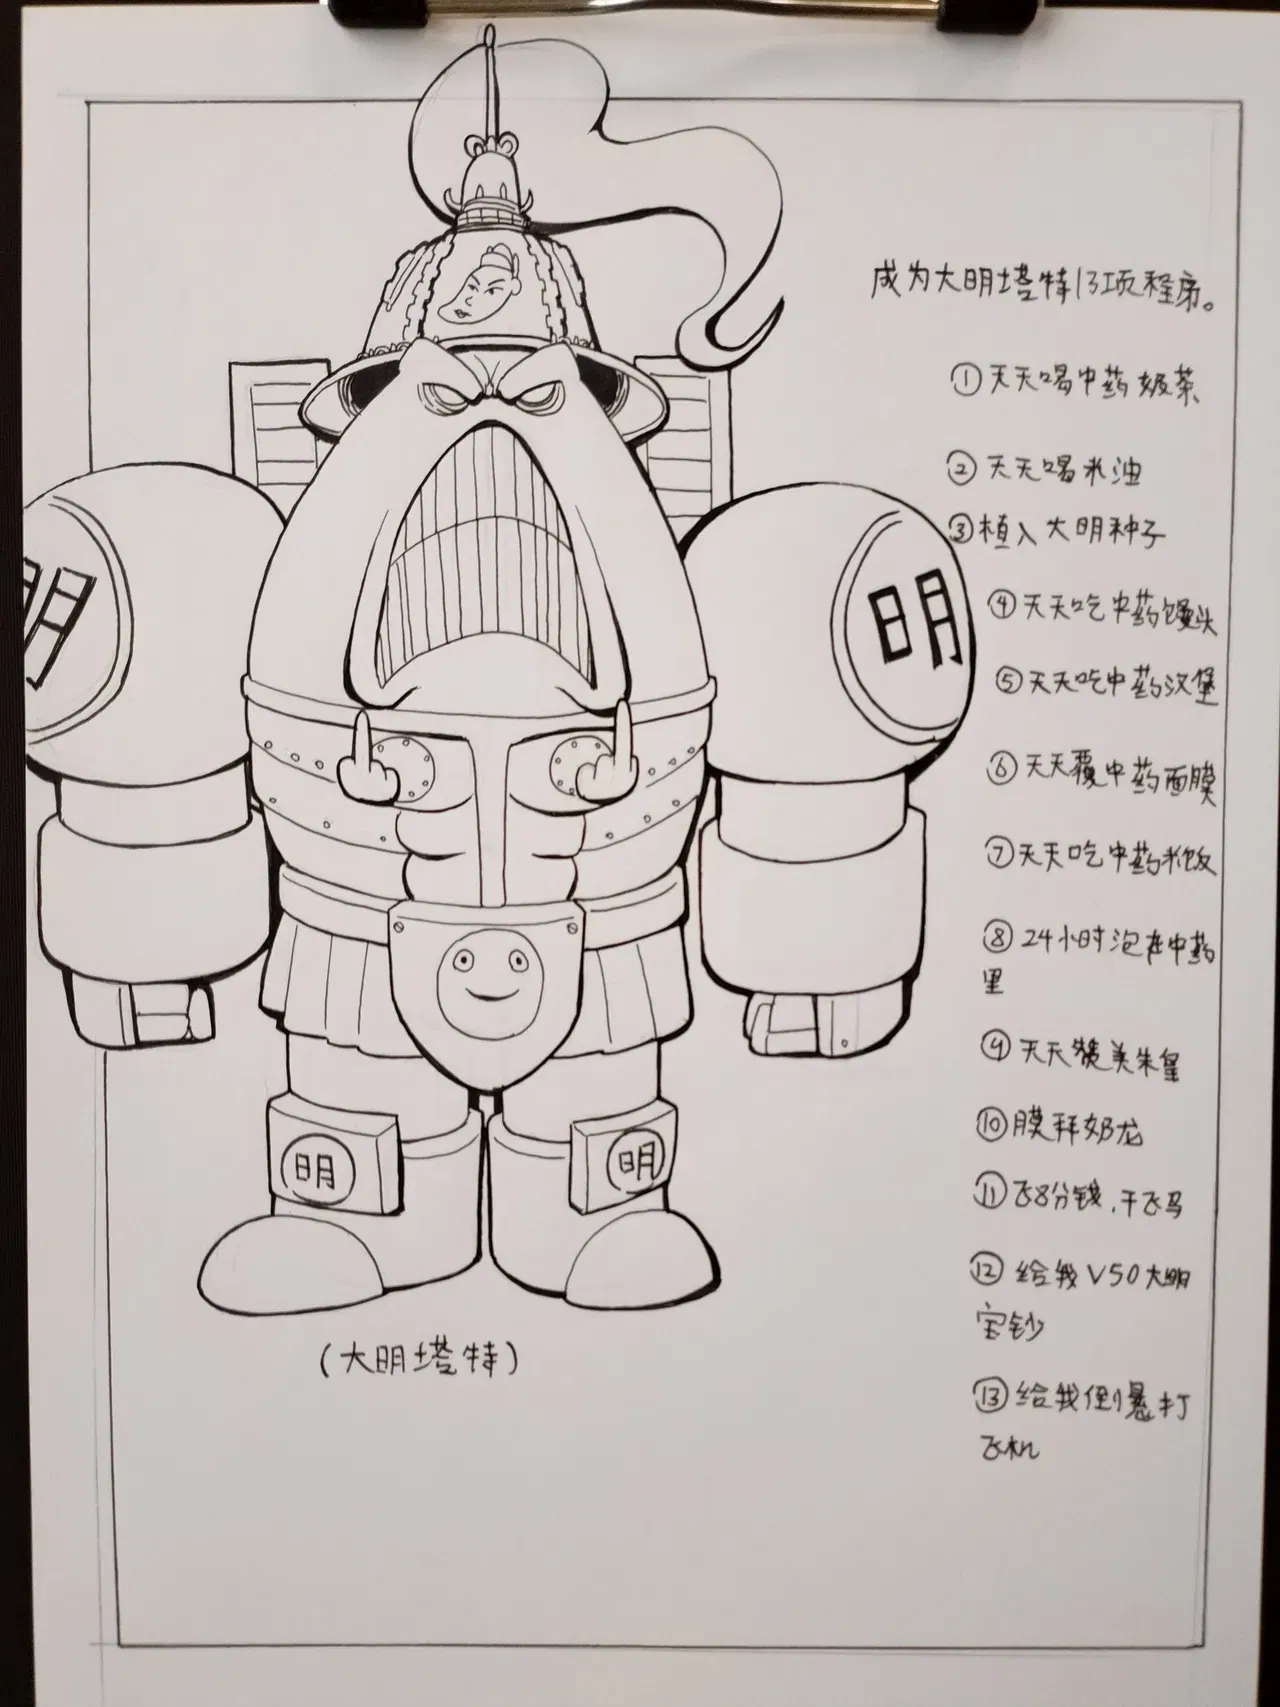 成为大明塔特13项程序。
① 天天喝中药奶茶
② 天天喝米油
③ 植入大明种子
④ 天天吃中药馒头
⑤ 天天吃中药汉堡
⑥ 天天覆中药面膜
⑦ 天天吃中药米饭
⑧ 24小时泡在中药
里
⑨ 天天赞美朱皇
⑩ 膜拜奶龙
⑪ 飞8分钱,干飞马
⑫ 给我V50大明
宝钞
⑬ 给我倒悬打
飞机
明
明
明
明
(大明塔特)